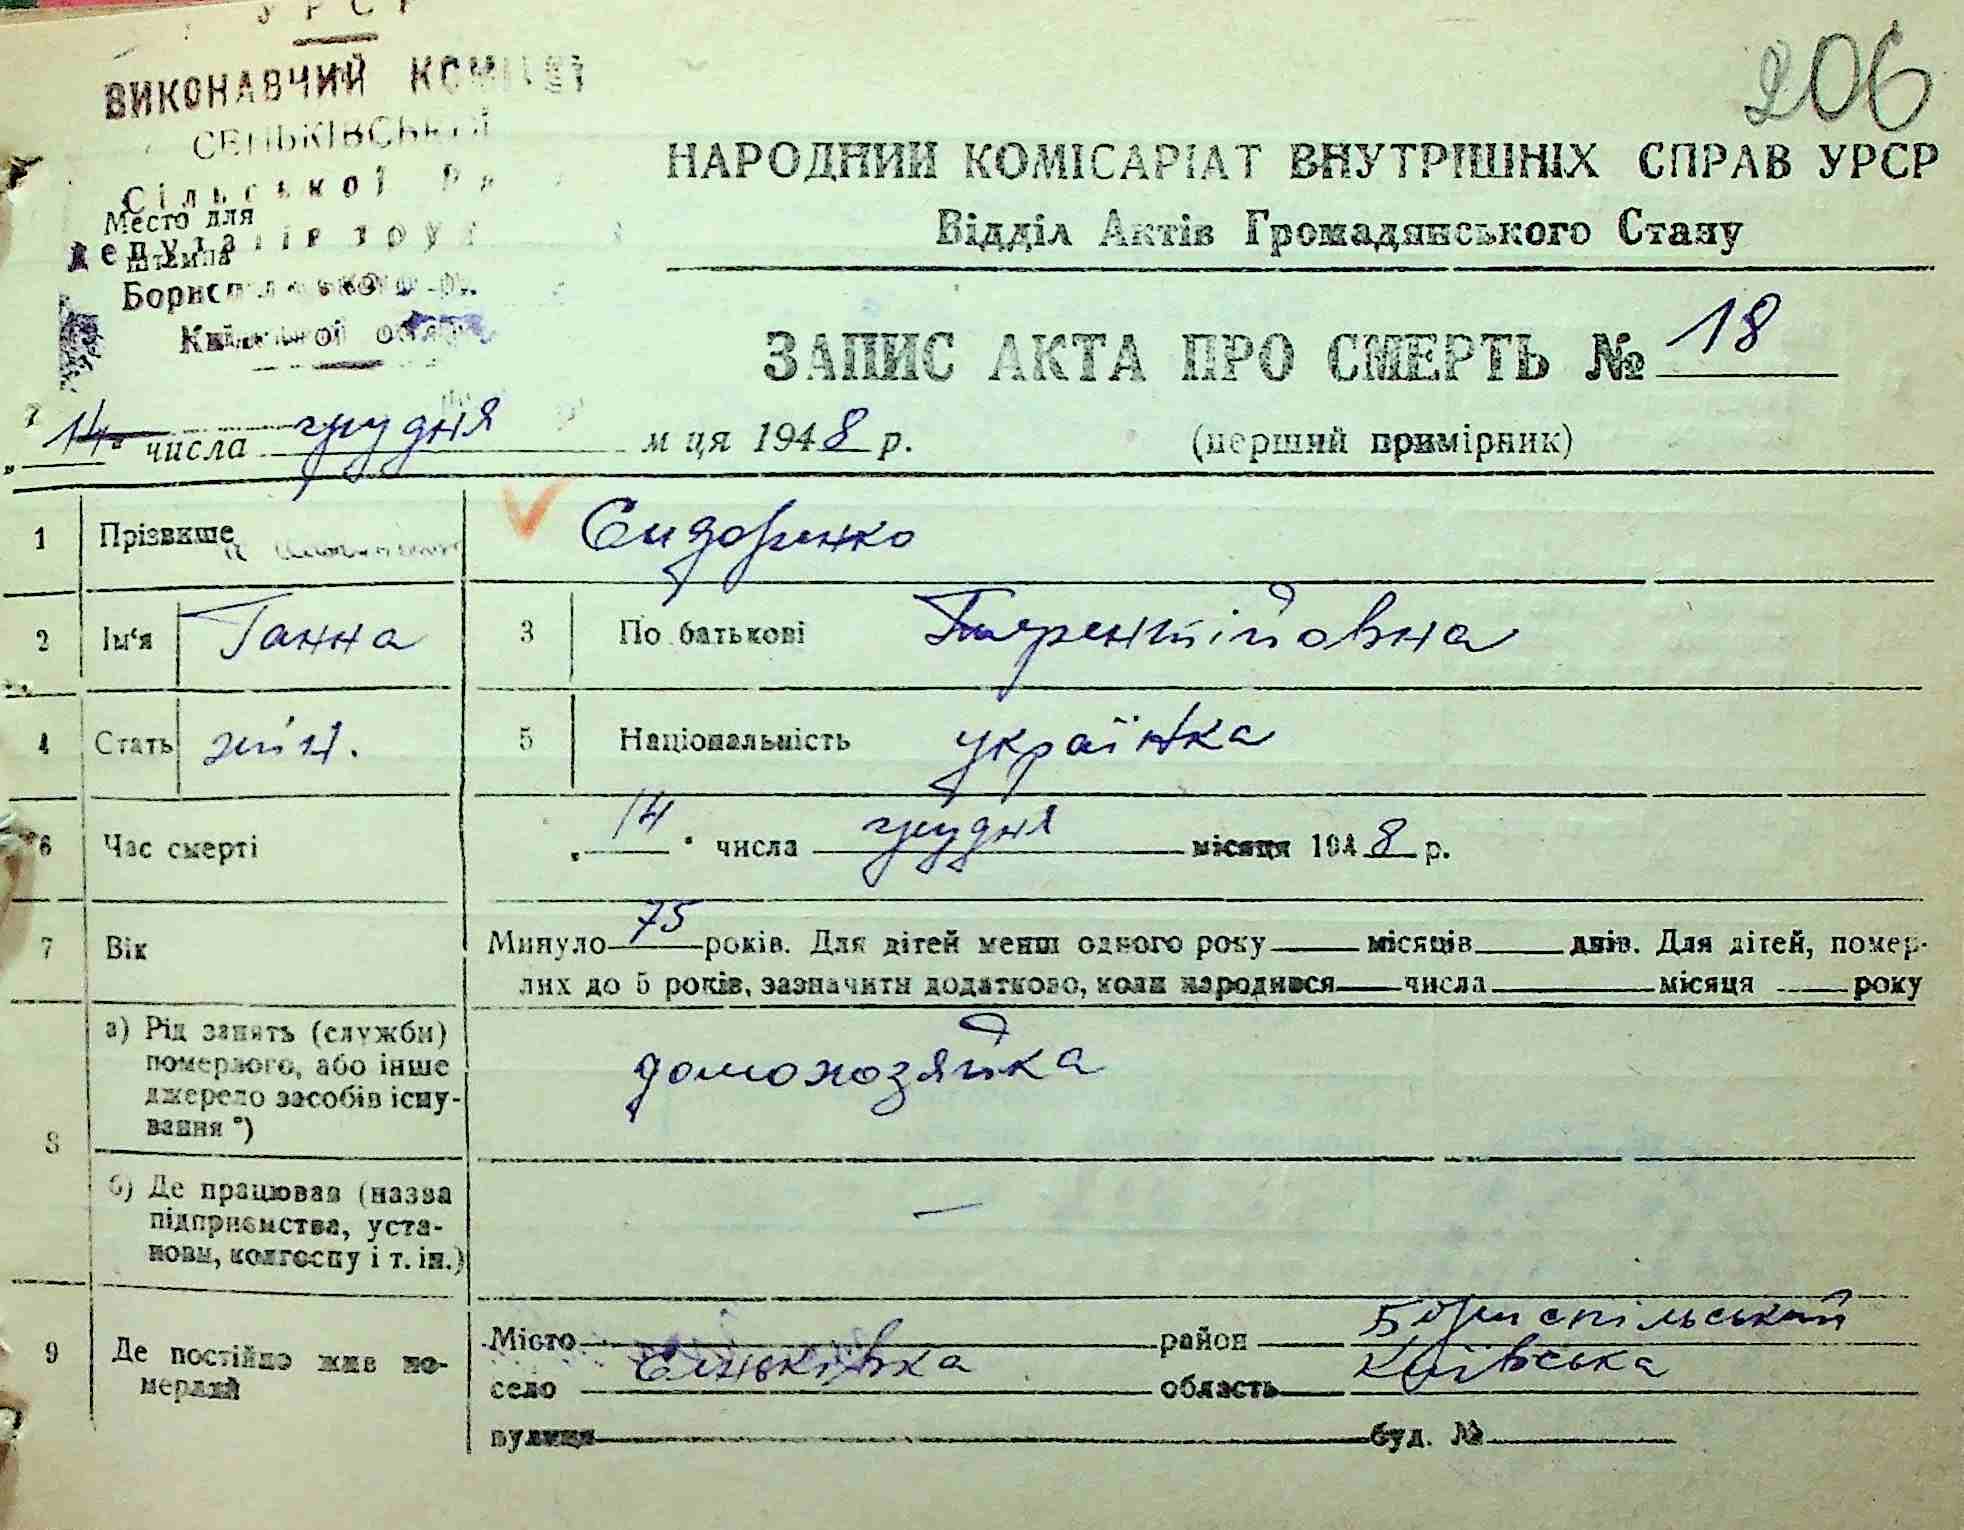 УРСР
206
ВИКОНАВЧИЙ КОМІТЕТ
СЕНЬКІВСЬКОЇ
Сільської Ра
Место для
депутатів труд
штемпа
Бориспільського р.
Київської обл
НАРОДНИЙ КОМІСАРІАТ ВНУТРІШНІХ СПРАВ УРСР
Відділ Актів Громадянського Стану
ЗАПИС АКТА ПРО СМЕРТЬ № 18
„14“ числа грудня м ця 1948 р. (перший примірник)
1 Прізвище Сидоренко
2 Ім‘я Ганна 3 По батькові Терентійовна
4 Стать жін. 5 Національність українка
6 Час смерті „14“ числа грудня місяця 1948 р.
7 Вік Минуло 75 років. Для дітей менш одного року місяців днів. Для дітей, помер-
лих до 5 років, зазначити додатково, коли народився числа місяця року
8 а) Рід занять (служби)
померлого, або інше
джерело засобів існу-
вання *)
домохозяйка
б) Де працював (назва
підприємства, уста-
нови, колгоспу і т. ін.)
—
9 Де постійно жив по-
мерлий
Місто район Бориспільський
село Сеньківка область Київська
вулиця буд. №